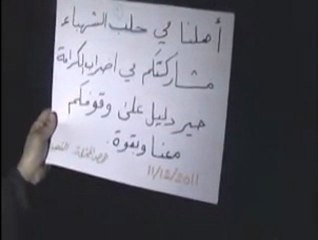 أهلنا في حلب الشهباء
مشاركتكم في اضراب الكرامة
خير دليل على وقوفكم
معنا وبقوة.
11/12/2011